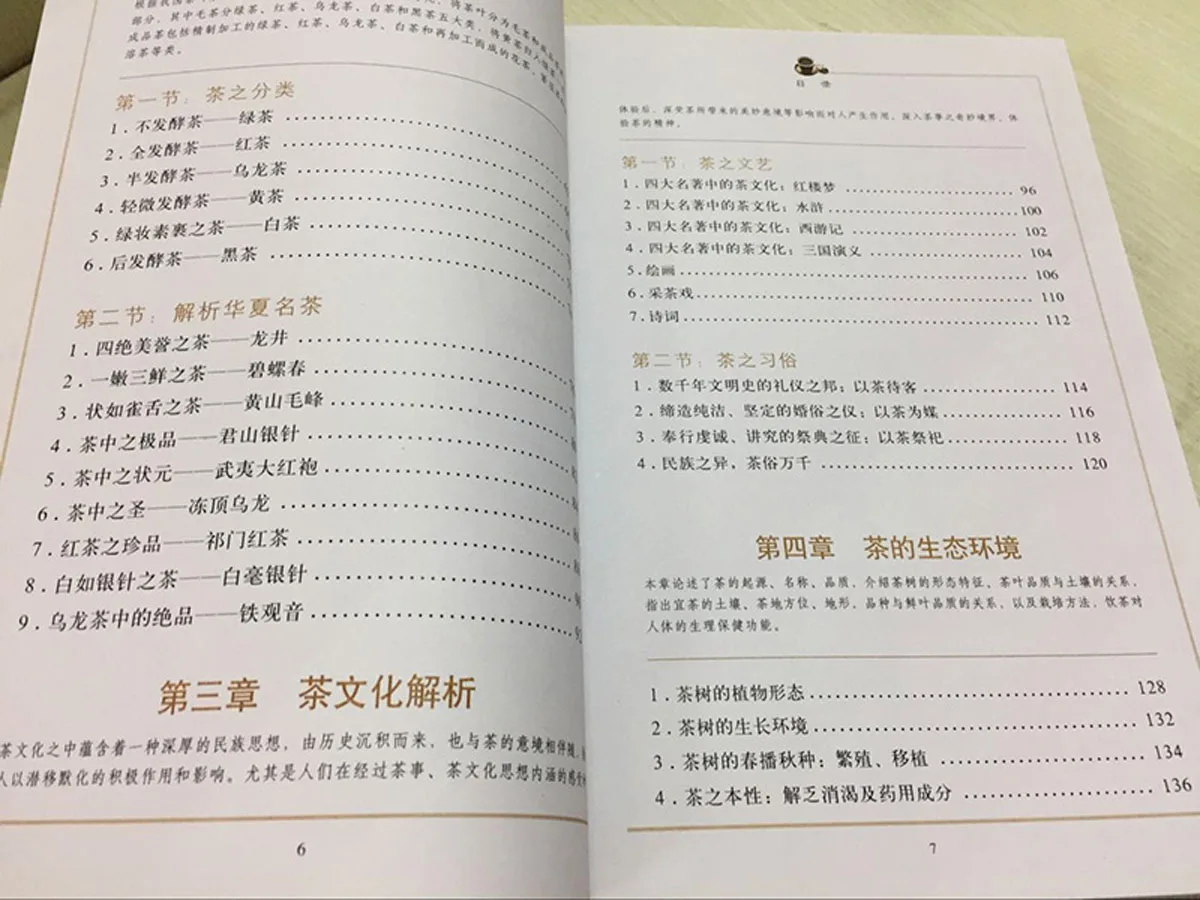 部分，其中毛茶分绿茶、红茶、乌龙茶、白茶和黑茶五大类，将黄茶归入
成品茶包括精制加工的绿茶、红茶、乌龙茶、白茶和再加工而成的花茶、
溶茶等类。
第一节：茶之分类
1．不发酵茶——绿茶
2．全发酵茶——红茶
3．半发酵茶——乌龙茶
4．轻微发酵茶——黄茶
5．绿妆素裹之茶——白茶
6．后发酵茶——黑茶
第二节：解析华夏名茶
1．四绝美誉之茶——龙井
2．一嫩三鲜之茶——碧螺春
3．状如雀舌之茶——黄山毛峰
4．茶中之极品——君山银针
5．茶中之状元——武夷大红袍
6．茶中之圣——冻顶乌龙
7．红茶之珍品——祁门红茶
8．白如银针之茶——白毫银针
9．乌龙茶中的绝品——铁观音
第三章 茶文化解析
茶文化之中蕴含着一种深厚的民族思想，由历史沉积而来，也与茶的意境相伴随，
人以潜移默化的积极作用和影响。尤其是人们在经过茶事、茶文化思想内涵的感
6
目 录
体验后，深受茶所带来的美妙意境等影响而对人产生作用，深入茶事之奇妙境界，体
验茶的精神。
第一节：茶之文艺
1．四大名著中的茶文化：红楼梦 96
2．四大名著中的茶文化：水浒 100
3．四大名著中的茶文化：西游记 102
4．四大名著中的茶文化：三国演义 104
5．绘画 106
6．采茶戏 110
7．诗词 112
第二节：茶之习俗
1．数千年文明史的礼仪之邦：以茶待客 114
2．缔造纯洁、坚定的婚俗之仪：以茶为媒 116
3．奉行虔诚、讲究的祭典之征：以茶祭祀 118
4．民族之异，茶俗万千 120
第四章 茶的生态环境
本章论述了茶的起源、名称、品质，介绍茶树的形态特征、茶叶品质与土壤的关系，
指出宜茶的土壤、茶地方位、地形，品种与鲜叶品质的关系，以及栽培方法，饮茶对
人体的生理保健功能。
1．茶树的植物形态 128
2．茶树的生长环境 132
3．茶树的春播秋种：繁殖、移植 134
4．茶之本性：解乏消渴及药用成分 136
7